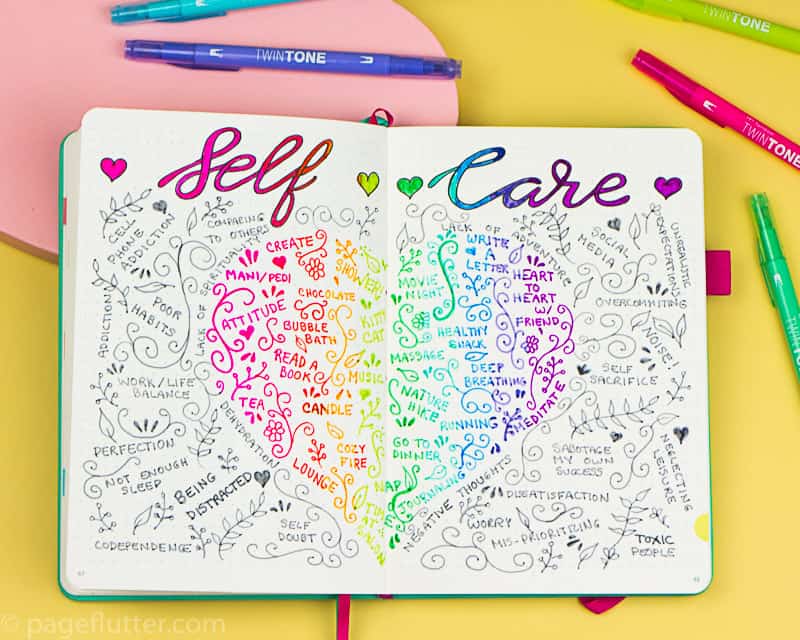 TWINTONE
TWINTONE
TWINTONE
TWINTONE
Self
Care
CELL
PHONE
ADDICTION
COMPARING
TO OTHERS
LACK OF SPIRITUALITY
ADDICTIONS
POOR
HABITS
WORK/LIFE
BALANCE
PERFECTION
NOT ENOUGH
SLEEP
BEING
DISTRACTED
CODEPENDENCE
SELF
DOUBT
DEHYDRATION
CREATE
MANI/PEDI
ATTITUDE
CHOCOLATE
BUBBLE
BATH
READ A
BOOK
TEA
CANDLE
LOUNGE
COZY
FIRE
SHOWER
KITTY
CAT
MUSIC
NAP
TIME
AT
SALON
LACK OF
ADVENTURE
WRITE
A
LETTER
MOVIE
NIGHT
HEART
TO
HEART
W/
FRIEND
HEALTHY
SNACK
MASSAGE
DEEP
BREATHING
NATURE
HIKE
RUNNING
MEDITATE
GO TO
DINNER
JOURNALING
NEGATIVE THOUGHTS
SOCIAL
MEDIA
UNREALISTIC
EXPECTATIONS
OVERCOMMITING
NOISE!
SELF
SACRIFICE
SABOTAGE
MY OWN
SUCCESS
NEGLECTING
LEISURE
DISSATISFACTION
WORRY
MIS-PRIORITIZING
TOXIC
PEOPLE
© pageflutter.com